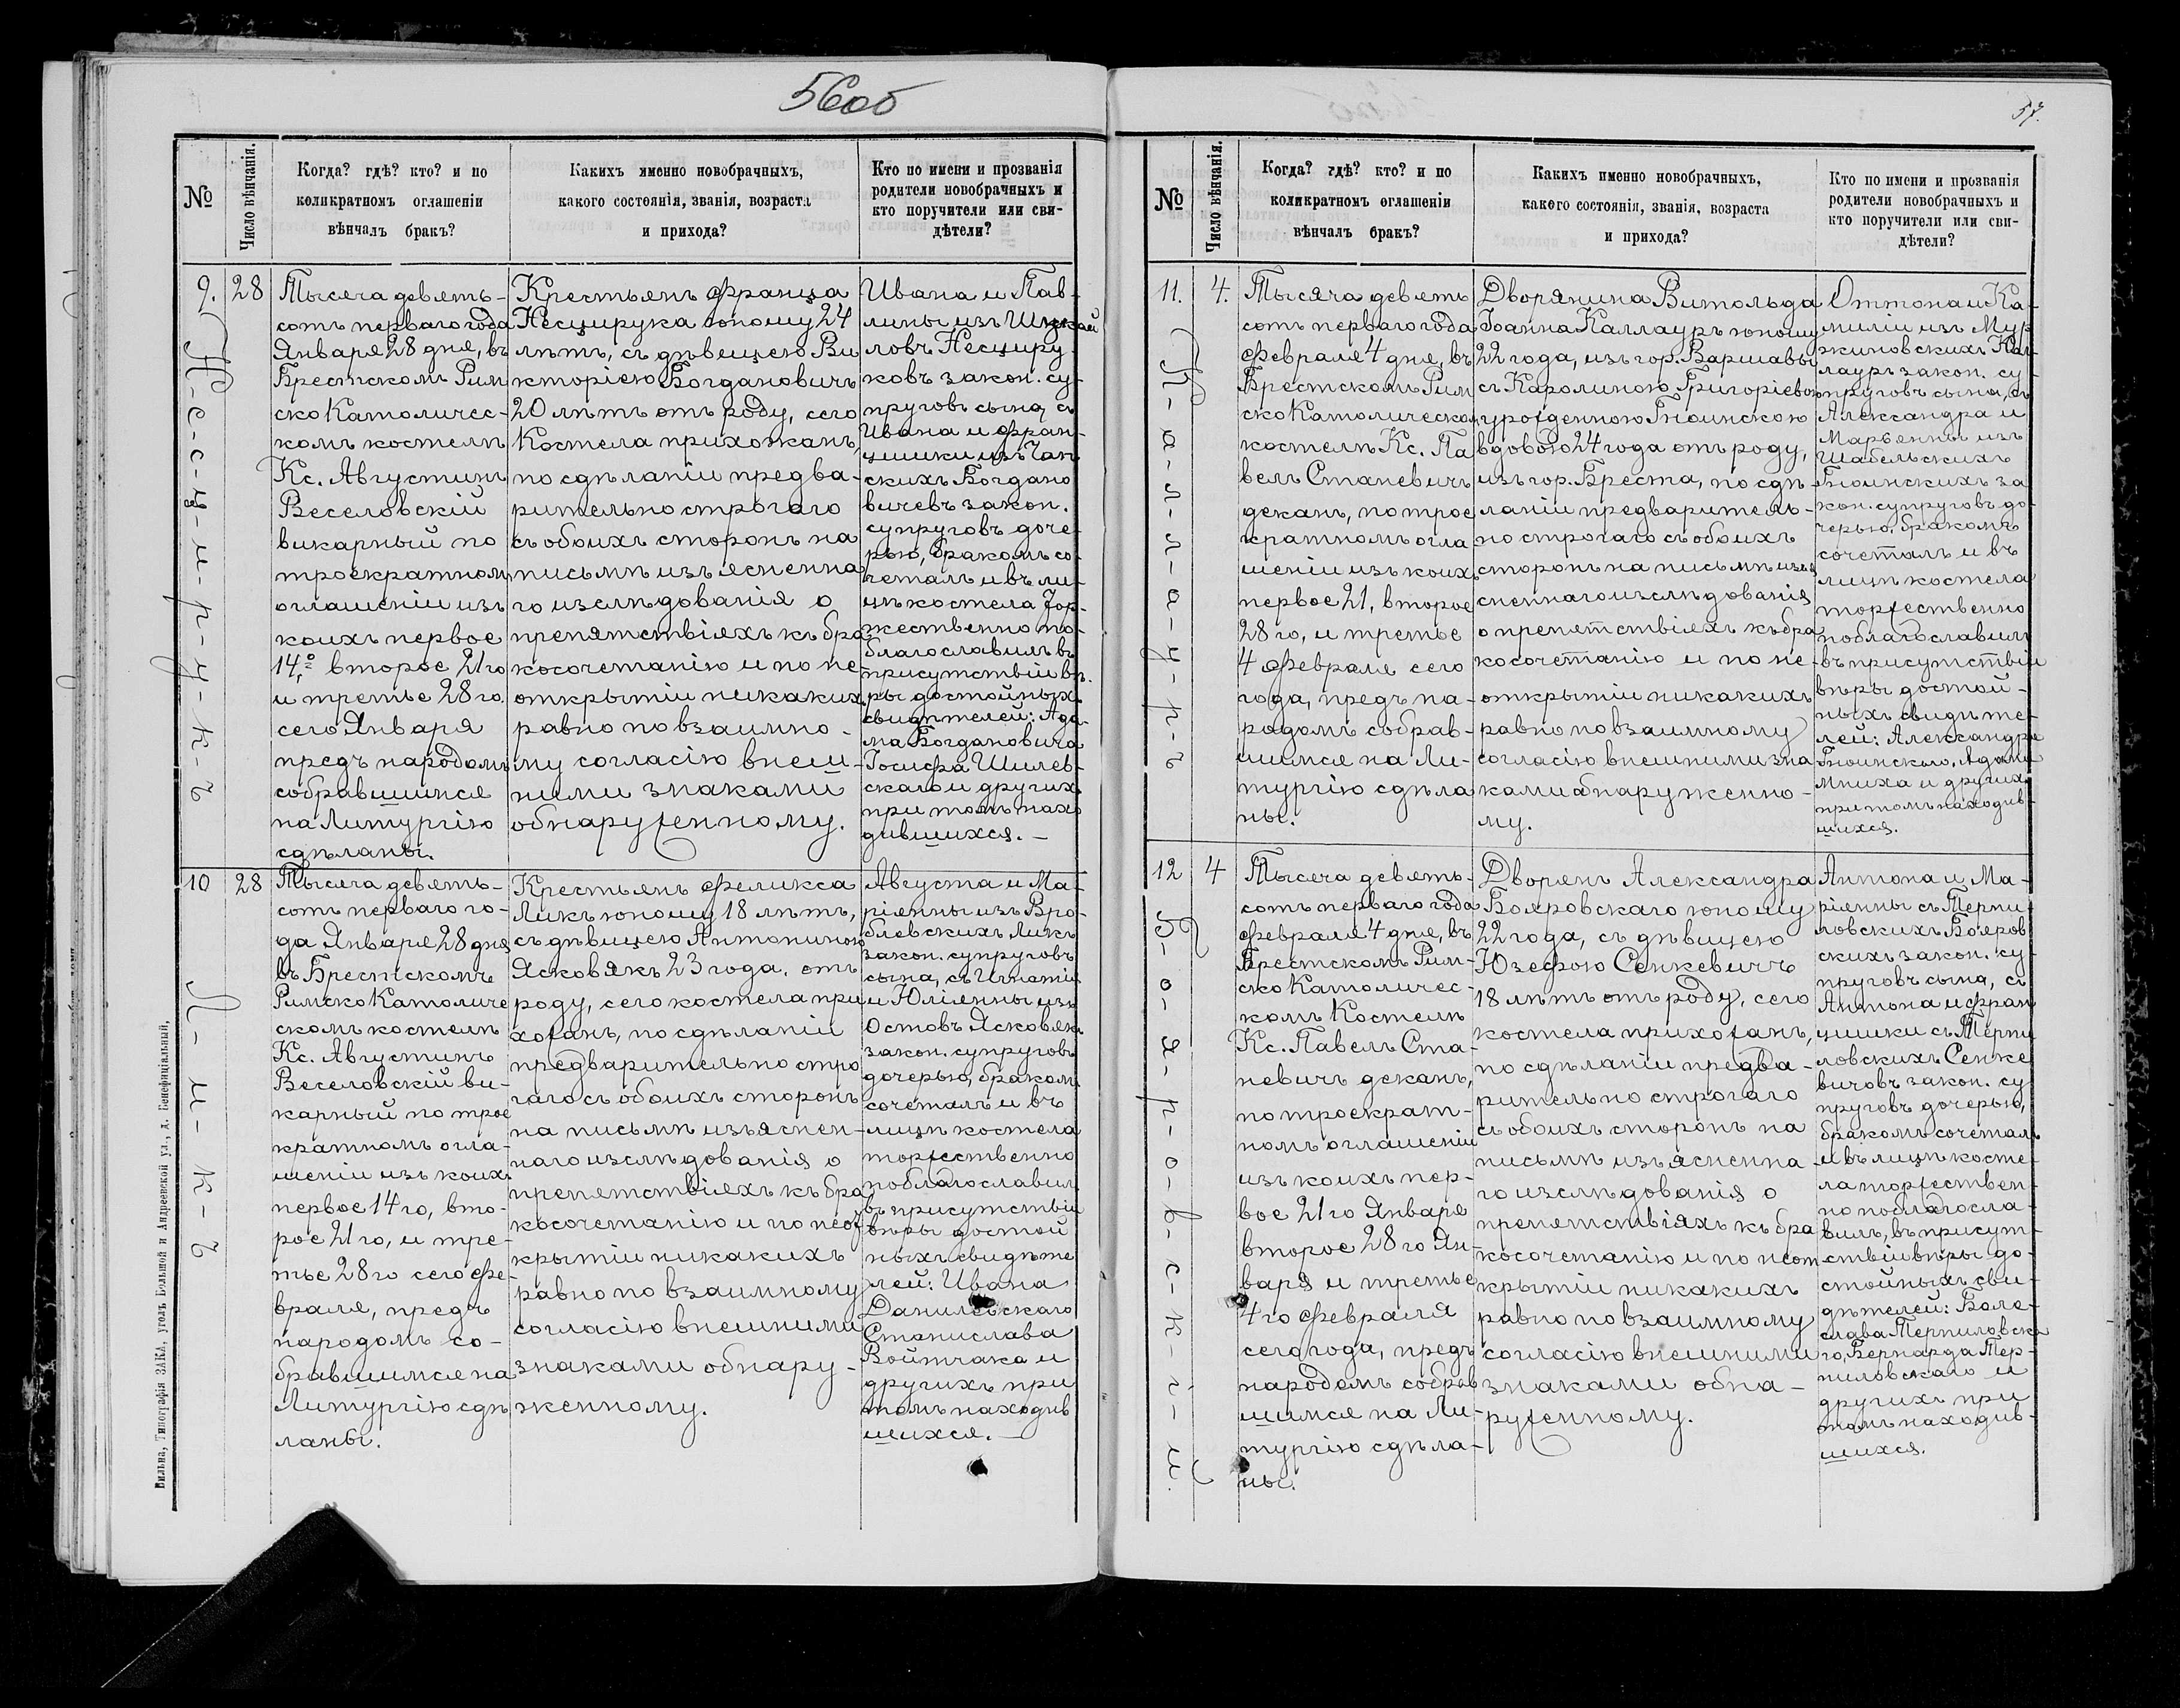 56об
№
Число вѣнчанія.
Когда? гдѣ? кто? и по
коликратномъ оглашеніи
вѣнчалъ бракъ?
Какихъ именно новобрачныхъ,
какого состоянія, званія, возраста
и прихода?
Кто по имени и прозванія
родители новобрачныхъ и
кто поручители или сви-
дѣтели?
9.
Н-е-с-ц-и-р-у-к-ъ
28
Тысяча девять-
сотъ перваго года
Января 28 дня, въ
Брестскомъ Рим
ско Католичес-
комъ костелѣ
Кс. Августинъ
Веселовскій
викарный по
троекратномъ
оглашеніи изъ
коихъ первое
14,º второе 21 го
и третье 28 го.
сего Января
предъ народомъ
собравшимся
на Литургію
сдѣланы.
Крестьянъ Франца
Несцирука юношу 24
лѣтъ, съ дѣвицею Ви
кторіею Богдановичъ
20 лѣтъ отъ роду, сего
Костела прихожанъ,
по сдѣланіи предва-
рительно строгаго
съ обоихъ сторонъ на
письмѣ изъясненна
го изслѣдованія о
препятствіяхъ къ бра
косочетанію и по не-
открытіи никакихъ
равно по взаимно-
му согласію внеш-
ними знаками
обнаруженному.
Ивана и Пав-
лины изъ
ловъ Несциру
ковъ закон. су-
пруговъ сына, съ
Ивана и Фран-
цишки изъ Чап
скихъ Богдано
вичевъ закон.
супруговъ доче-
рью, бракомъ со-
четалъ и въ ли-
цѣ костела Тор-
жественно по-
благославилъ въ
присутствіи вѣ-
ры достойныхъ
свидѣтелей: Ада-
ма Богдановича
Іосифа Шилев-
скаго и другихъ
при томъ нахо
дившихся. —
10
Л-и-к-ъ
28
Тысяча девять-
сотъ перваго го-
да Января 28 дня
въ Брестскомъ
Римско Католиче
скомъ костелѣ
Кс. Августинъ
Веселовскій ви-
карный по трое
кратномъ огла-
шеніи изъ коихъ
первое 14 го, вто-
рое 21 го, и тре-
тье 28 го сего Фе-
враля, предъ
народомъ со-
бравшимся на
Литургію сдѣ
ланы.
Крестьянъ Феликса
Ликъ юношу 18 лѣтъ,
съ дѣвицею Антониною
Ясковякъ 23 года. отъ
роду, сего костела при
хожанъ, по сдѣланіи
предварительно стро
гаго съ обоихъ сторонъ
на письмѣ изъяснен-
наго изслѣдованія о
препятствіяхъ къ бра
косочетанію и по неот
крытіи никакихъ
равно по взаимному
согласію внешними
знаками обнару-
женному.
Августа и Ма-
ріянны изъ Вро-
блевскихъ Ликъ
закон. супруговъ
сына, съ Игнатія
и Юліянны изъ
Остовъ Ясковякъ
закон. супруговъ
дочерью, бракомъ
сочеталъ и въ
лицѣ костела
торжественно
поблагославилъ
въ присутствіи
вѣры достой
ныхъ свидѣте
лей: Ивана
Данилевскаго
Станислава
Войтчака и
другихъ при
томъ находив
шихся. —
Вильна, Типографія ЗАКА, уголъ Большой и Андреевской ул., д. Бенефиціальный,
57.
№
Число вѣнчанія.
Когда? гдѣ? кто? и по
коликратномъ оглашеніи
вѣнчалъ бракъ?
Какихъ именно новобрачныхъ,
какого состоянія, званія, возраста
и прихода?
Кто по имени и прозванія
родители новобрачныхъ и
кто поручители или сви-
дѣтели?
11.
К-а-л-л-а-у-р-ъ
4.
Тысяча девять
сотъ перваго года
Февраля 4 дня, въ
Брестскомъ Рим
ско Католическомъ
костелѣ Кс. Па
велъ Станевичъ
деканъ, по трое
кратномъ огла
шеніи изъ коихъ
первое 21, второе
28 го, и третье
4 Февраля сего
года, предъ на-
родомъ собрав-
шимся на Ли-
тургію сдѣла
ны.
Дворянина Витольда
Іоанна Каллауръ юношу
22 года, изъ гор. Варшавы
съ Каролиною Григоріевою
урожденною Гноинскою
вдовою 24 года отъ роду,
изъ гор. Бреста, по сдѣ-
ланіи предваритель-
но строгаго съ обоихъ
сторонъ на письмѣ изъя
сненнаго изслѣдованія
о препятствіяхъ къ бра
косочетанію и по не-
открытіи никакихъ
равно по взаимному
согласію внешними зна
ками обнаруженно-
му.
Оттона и Ка-
миліи изъ Мур
жиновскихъ Кал-
лауръ закон. су-
пруговъ сына, съ
Александра и
Марьянны изъ
Шабельскихъ
Гноинскихъ за
кон. супруговъ до-
черью, бракомъ
сочеталъ и въ
лицѣ костела
торжественно
поблагославилъ
въ присутствіи
вѣры достой-
ныхъ свидѣте-
лей: Александра
Гноинскаго, Адама
Мниха и другихъ
при томъ находив-
шихся.
12
Б-о-я-р-о-в-с-к-і-й.
4
Тысяча девять-
сотъ перваго года
Февраля 4 дня, въ
Брестскомъ Рим-
ско Католичес-
комъ Костелѣ
Кс. Павелъ Ста-
невичъ деканъ,
по троекрат-
номъ оглашеніи
изъ коихъ пер-
вое 21 го Января
второе 28 го Ян-
варя и третье
4 го Февраля
сего года, предъ
народомъ собрав
шимся на Ли-
тургію сдѣла-
ны.
Дворянъ Александра
Бояровскаго юношу
22 года, съ дѣвицею
Юзефою Сенкевичъ
18 лѣтъ отъ роду, сего
костела прихожанъ,
по сдѣланіи предва-
рительно строгаго
съ обоихъ сторонъ на
письмѣ изъясненна-
го изслѣдованія о
препятствіяхъ къ бра
косочетанію и по неот-
крытіи никакихъ
равно по взаимному
согласію внешними
знаками обна-
руженному.
Антона и Ма-
ріянны съ Терпи-
ловскихъ Бояров
скихъ закон. су-
пруговъ сына, съ
Антона и Фран
цишки съ Терпи
ловскихъ Сенке
вичовъ закон. су
пруговъ дочерью,
бракомъ сочеталъ
и въ лицѣ косте-
ла торжествен-
но поблагосла-
вилъ, въ присут-
ствіи вѣры до-
стойныхъ сви-
дѣтелей: Боле-
слава Терпиловска
го, Бернарда Тер-
пиловскаго и
другихъ при
томъ находив-
шихся.